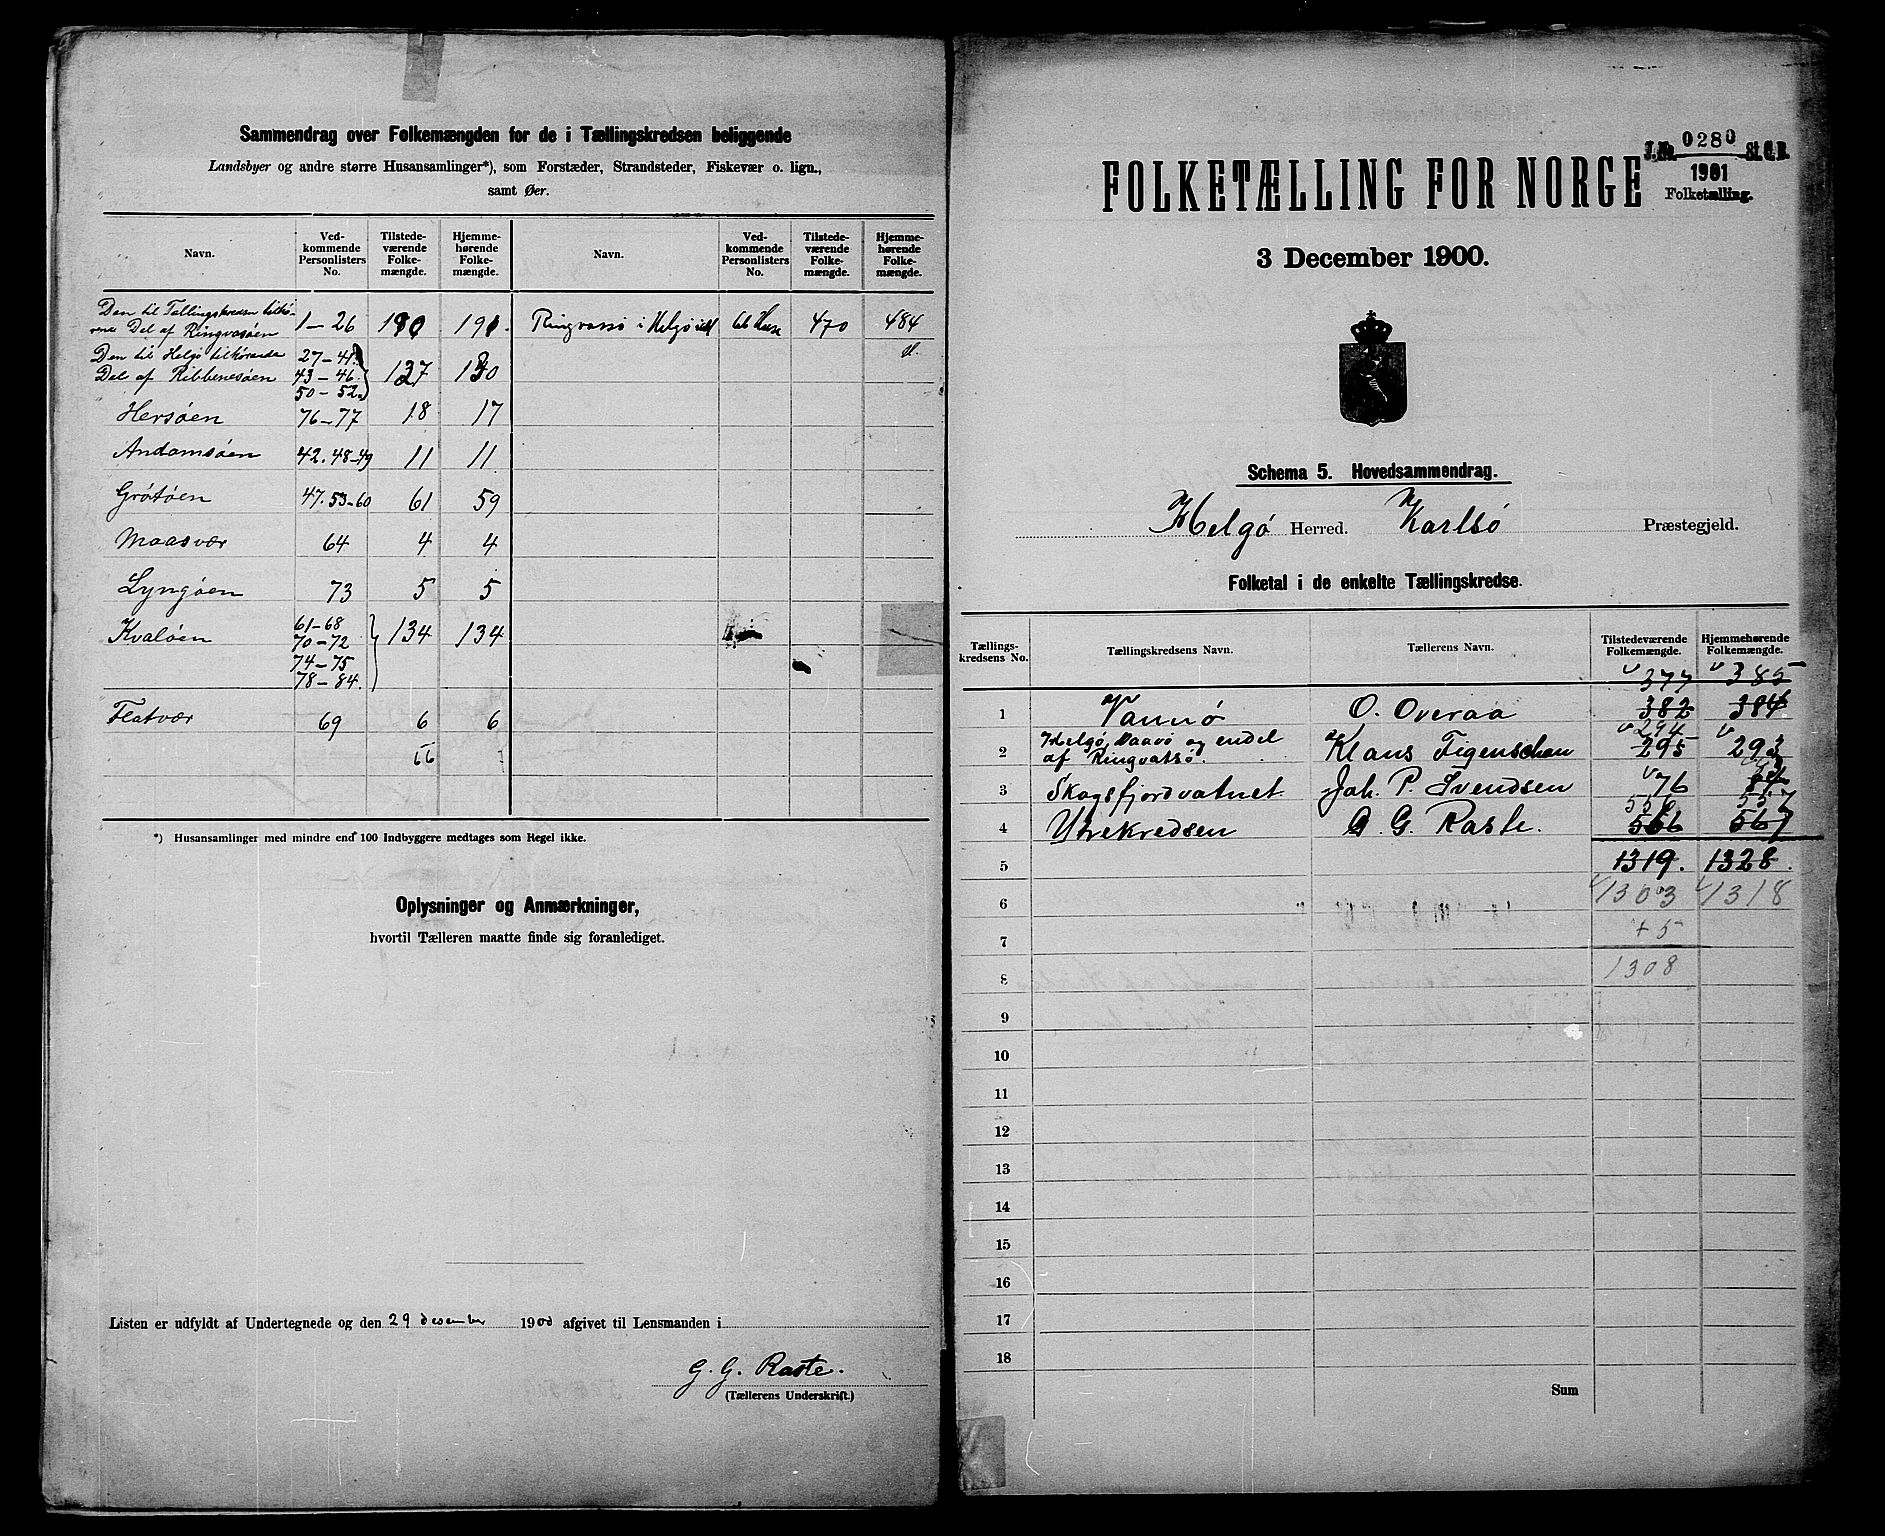 Sammendrag over Folkemængden for de i Tællingskredsen beliggende
Landsbyer og andre større Husansamlinger*), som Forstæder, Strandsteder, Fiskevær o. lign.,
samt Øer.
Navn. Ved-kommende Personlisters No. Tilstede-værende Folke-mængde. Hjemme-hørende Folke-mængde. Navn. Ved-kommende Personlisters No. Tilstede-værende Folke-mængde. Hjemme-hørende Folke-mængde.
Den til Tellingskredsen tilhö-
rene Del af Ringvasöen 1–26 190 191. Ringvassö i Helgö 66 Huse 470 484
Den til Helgö tilhörende 27–41
Del af Ribbenesöen 43–46 137 130
50–52
Hersöen 76–77 18 17
Andamsöen 42. 48–49 11 11
Grötöen 47. 53–60 61 59
Maasvær 64 4 4
Lyngöen 73 5 5
Kvalöen 61–68 134 134
70–72
74–75
78–84.
Flatvær 69 6 6
*) Husansamlinger med mindre end 100 Indbyggere medtages som Regel ikke.
Oplysninger og Anmærkninger,
hvortil Tælleren maatte finde sig foranlediget.
Listen er udfyldt af Undertegnede og den 29 desember 1900 afgivet til Lensmanden i
G. G. Raste.
(Tællerens Underskrift.)
J. No. 0280 St. C. B.
1901
Folketælling.
FOLKETÆLLING FOR NORGE
3 December 1900.
Schema 5. Hovedsammendrag.
Helgö Herred. Karlsö Præstegjeld.
Folketal i de enkelte Tællingskredse.
Tællings-kredsens No. Tællingskredsens Navn. Tællerens Navn. Tilstedeværende Folkemængde. Hjemmehørende Folkemængde.
377 385
1 Vannö O. Overaa 382 384
294
2 Helgö, Vaavö og endel af Ringvatsö. Klaus Figenschau 295 293
3 Skogsfjordvatnet Joh. P. Svendsen 76
556 557
4 Ytrekredsen G. G. Raste. 566 567
5 1319. 1328.
6 1303 1318
7 + 5
8 1308
9
10
11
12
13
14
15
16
17
18
Sum